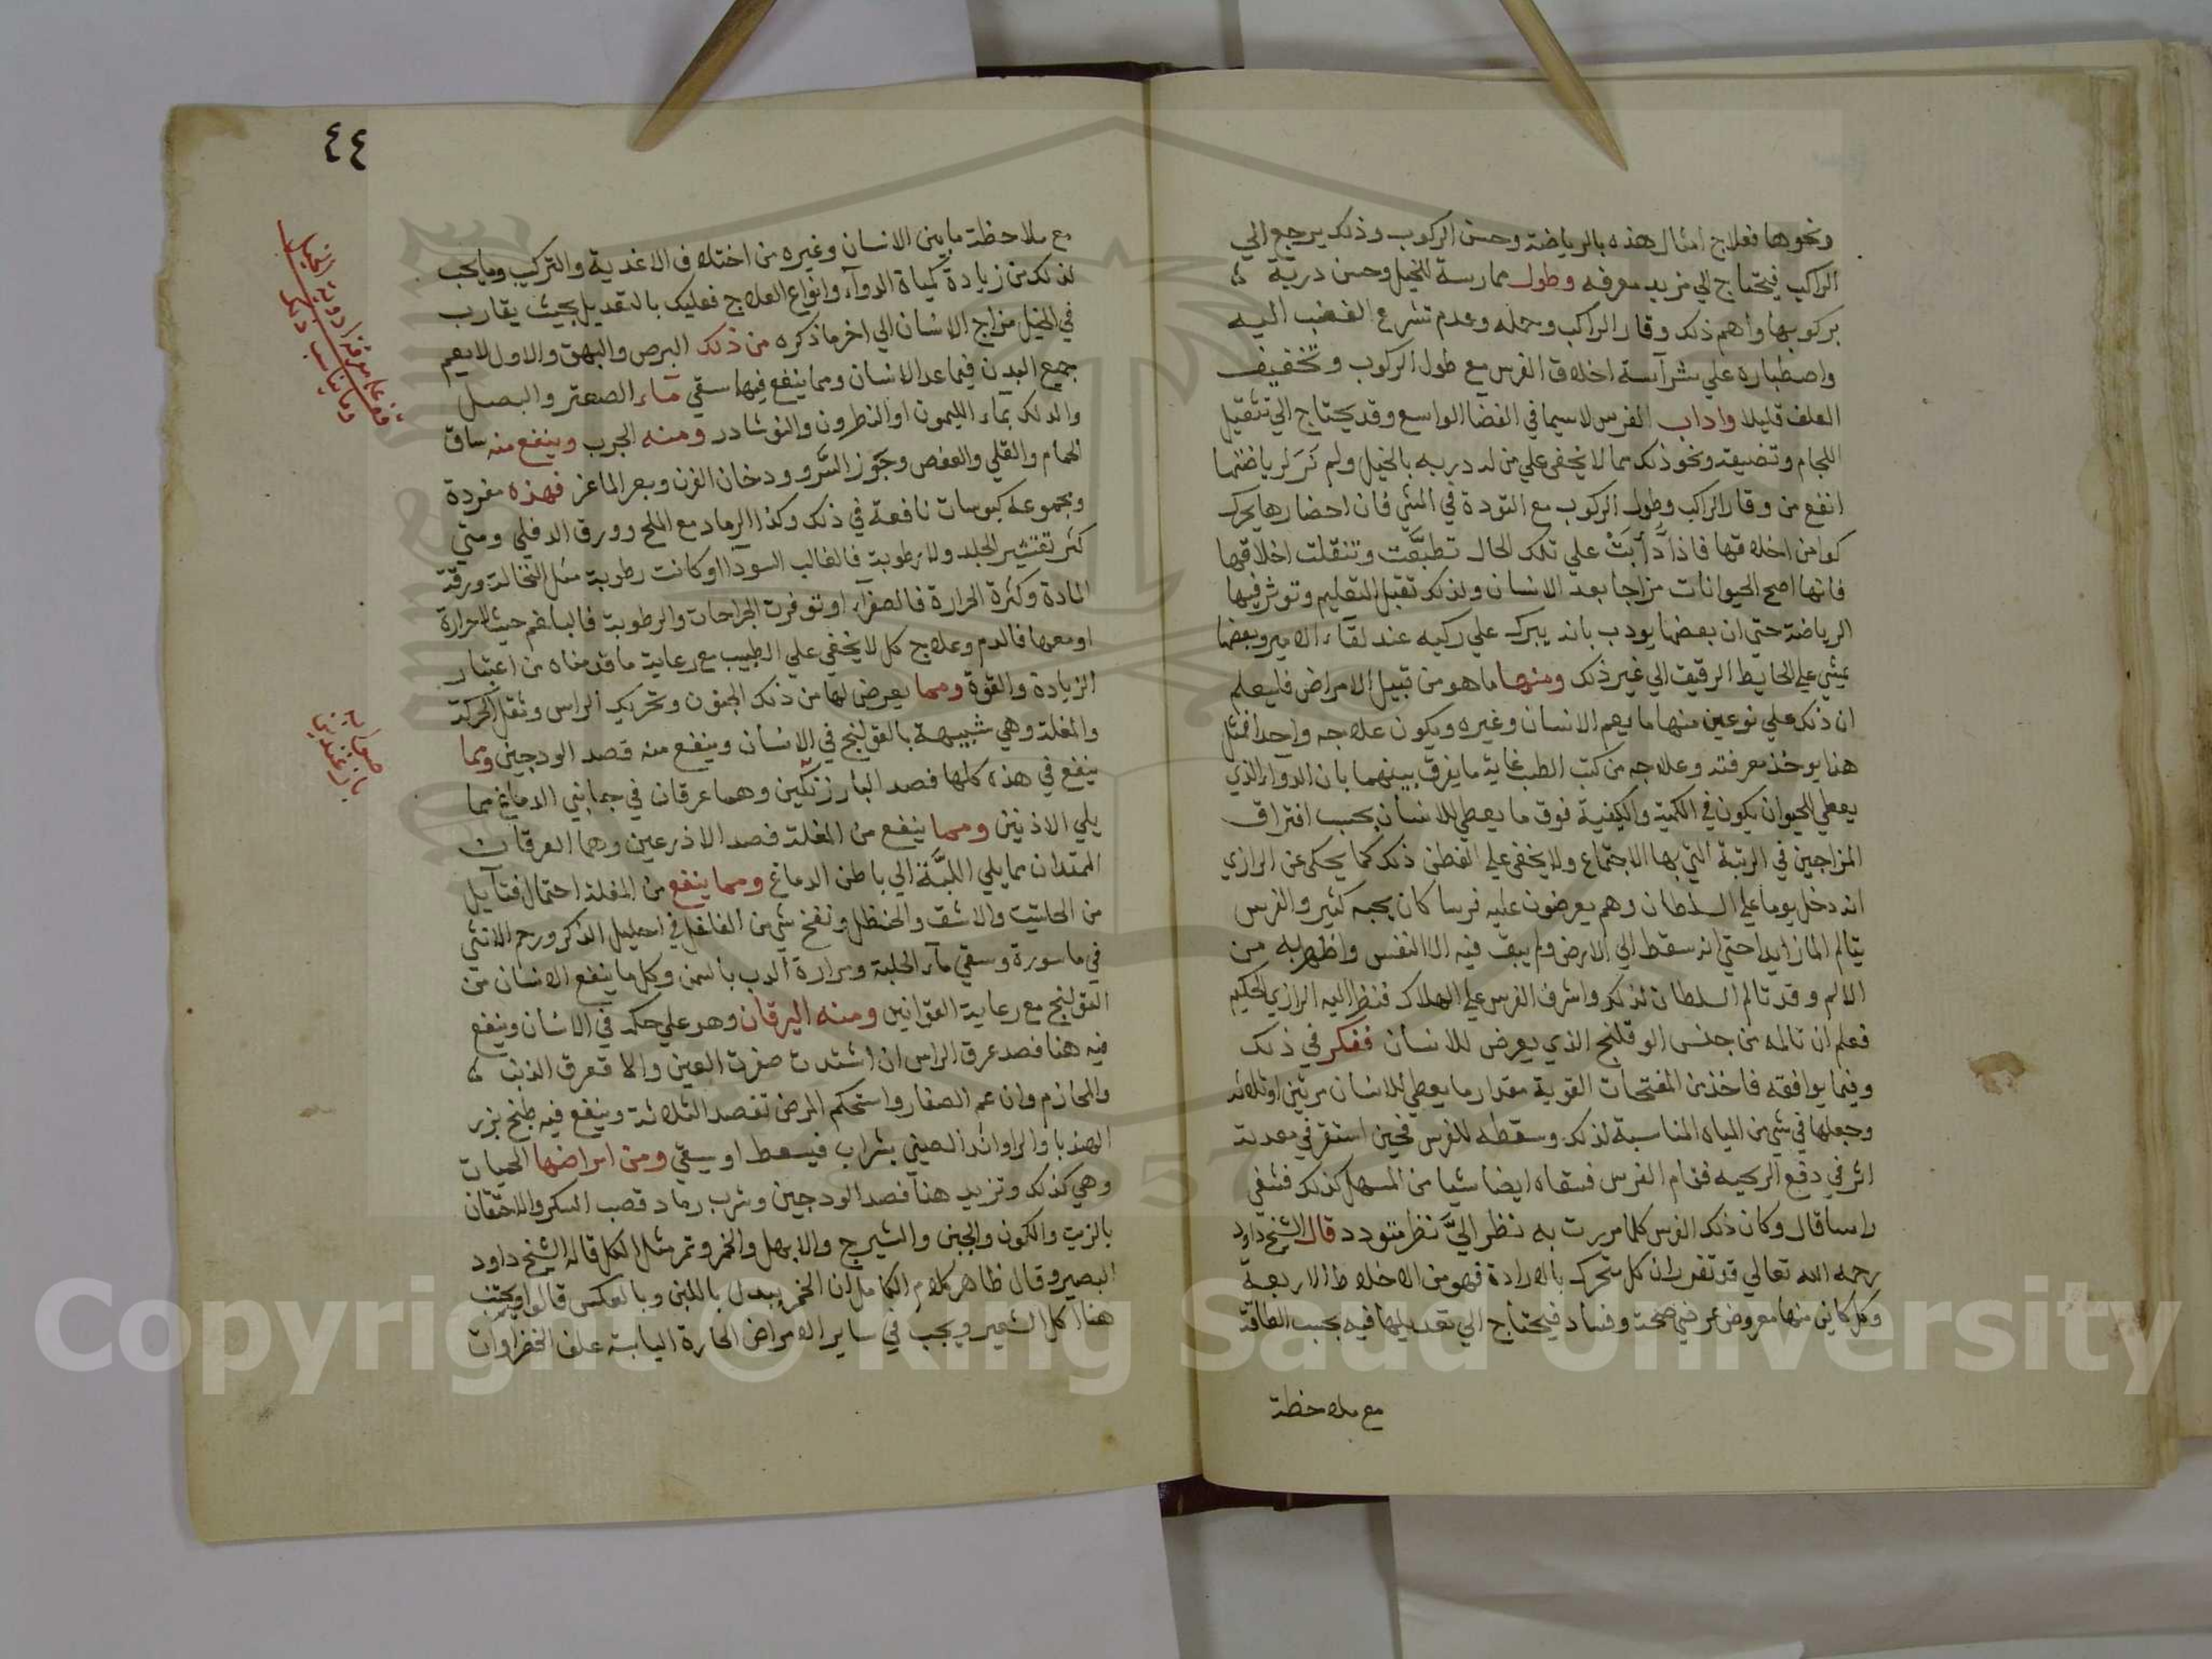 ونحوها فعلاج امثال هذه بالرياضة وحسن الركوب وذلك يرجع الي
الراكب فيحتاج الي مزيد معرفه وطول ممارسة للخيل وحسن دربة
بركوبها واهم ذلك وقار الراكب وحمله وعدم تسّرع الغضب اليه
واصطباره علي شرآسة اخلاق الفرس مع طول الركوب وتخفيف
العلف قليلا واداب الفرس لاسيما في الفضا الواسع وقد يحتاج الي تثقيل
اللجام وتضيقه ونحو ذلك مما لا يخفى علي من له دربه بالخيل ولم نَرَ لرياضتها
انفع من وقار الراكب وطول الركوب مع التودة في المشي فان احضارها يحرك
كوامن اخلاقها فاذا دَأَبَتْ علي تلك الحال تطبَّعَت وتنقلت اخلاقها
فانها اصح الحيوانات مزاجا بعد الانسان ولذلك تقبل التعليم وتوثر فيها
الرياضة حتي ان بعضها يودب بانه يبرك علي ركبه عند لقآء الامير وبعضها
يمشي علي الحايط الرقيق الي غير ذلك ومنها ما هو من قبيل الامراض فليعلم
ان ذلك علي نوعين منها ما يعم الانسان وغيره ويكون علاجه واحدا فمثل
هذا يوخذ معرفته وعلاجه من كتب الطب غاية ما يفرق بينهما بان الدواء الذي
يعطي الحيوان يكون في الكمية والكيفية فوق ما يعطي للانسان بحسب افتراق
المزاجين في الرتبة التي بها الاجتماع ولا يخفى علي الفطن ذلك كما يحكى عن الرازي
انه دخل يوما علي السلطان وهم يعرضون عليه فرسا كان يحبه كثير والفرس
يتالم الما زايدا حتي انه سقط الي الارض ولم يبق فيه الا النفس واظهر به من
الالم وقد تالم السلطان لذلك واشرف الفرس علي الهلاك فنظر اليه الرازي الحكيم
فعلم ان تالمه من جنس الوقلنج الذي يعرض للانسان ففكر في ذلك
وفيما يوافقه فاخذ من المفتحات القوية مقدار ما يعطي للانسان مرتين او ثلاثه
وجعلها في شي من المياه المناسبة لذلك وسقطه للفرس فحين استقر في معدته
اثر في دفع الريحيه فقام الفرس فسقاه ايضا شيا من المسهل كذلك فشفي
راسا قال وكان ذلك الفرس كلما مررت به نظر اليَّ نظر متودد قال الشيخ داود
رحمه الله تعالي قد تقرر ان كل متحرك بالارادة فهو من الاخلاط الاربعة
وكل كاين منها معروض عرضي صحة وفساد فيحتاج الي تعديلها فيه بحسب الطاقة
مع ملاحظة
٤٤
مع ملاحظة ما بين الانسان وغيره من اختلاف الاغدية والتركيب وما يجب
لذلك من زيادة كمياة الدوآء وانواع العلاج فعليك بالتعديل بحيث يقارب
في الخيل مزاج الانسان الي اخر ما ذكره من ذلك البرص والبهق والاول لا يعم
جميع البدن فيما عدا الانسان ومما ينفع فيها سقي مآء الصعتر والبصل
والدلك بمآء الليمون او النطرون والنوشادر ومنه الجرب وينفع منه ساق
الحمام والقلي والعفص وجوز السَّرو ودخان الفرن وبعر الماعز فهذه مفردة
ومجموعه كبوسات نافعة في ذلك وكذا الرماد مع الملح وورق الدفلي ومتي
كثر تقشير الجلد ولا رطوبة فالغالب السودآ او كانت رطوبة مثل النخالة ورقة
المادة وكثرة الحرارة فالصفرآء او توفرت الجراحات والرطوبة فالبلغم حيث لا حرارة
او معها فالدم وعلاج كل لا يخفي علي الطبيب مع رعاية ما قدمناه من اعتبار
الزيادة والقوة ومما يعرض لها من ذلك الجنون وتحريك الراس وثقل الحركة
والمغلة وهي شبيهة بالقولنج في الانسان وينفع منه فصد الودجين ومما
ينفع في هذه كلها فصد البازرنكين وهما عرقان في جمانبي الدماغ مما
يلي الاذنين ومما ينفع من المغلة فصد الاذرعين وهما العرقان
الممتدان مما يلي اللبَّة الي باطن الدماغ ومما ينفع من المغلة احتمال فتآيل
من الحلتيت والاشق والحنظل ونفخ شي من الفلفل في احليل الذكر ورحم الانثي
في ماسورة وسقي مآء الحلبة ومرارة الدب بالسمن وكل ما ينفع الانسان من
القولنج مع رعاية القوانين ومنه اليرقان وهو علي حكمه في الانسان وينفع
فيه هنا فصد عرق الراس ان اشتدت صفرت العين والا فعرق الذنب
والمحازم وان عم الصفار واستحكم المرض تفصد الثلاثة وينفع فيه طبخ بزر
الهندبا والراواند الصيني بشراب فيسعط او يسقي ومن امراضها الحميات
وهي كذلك وتزيد هنا فصد الودجين وشرب رماد قصب السكر والاحتقان
بالزيت والكمون والجبن والشيرج والابهل والخمر وتمر مثل الكل قاله الشيخ داود
البصير وقال ظاهر كلام الكامل ان الخمر يبدل باللبن وبالعكس قالوا ويجتنب
هنا اكل الشعير ويجب في ساير الامراض الحارة اليابسة علف الخضراوات
Copyright © King Saud University